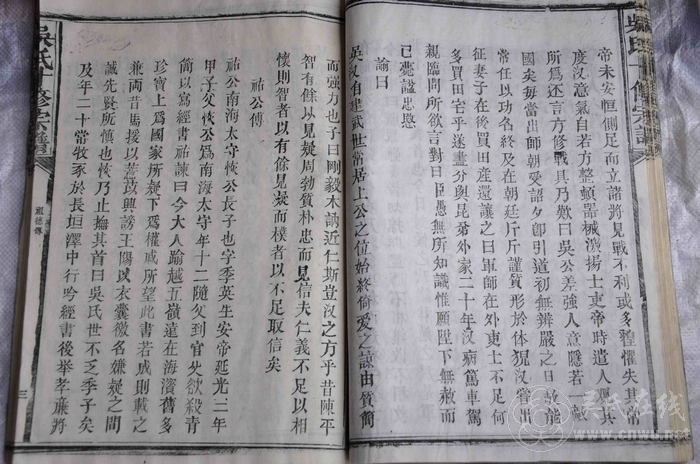 吳氏十修宗譜
帝未安恒側足而立諸將見戰不利或多惶懼失其常
度漢意氣自若方整頓器械激揚士吏帝時遣人觀其
所為還言方修戰具乃歎曰吳公差強人意隱若一敵
國矣每當出師朝受詔夕即引道初無辦嚴之日故能
常任以功名終及在朝廷斤斤謹質形於体貌漢嘗出
征妻子在後買田產還讓之曰軍師在外吏士不足何
多買田宅乎遂盡分與昆弟外家二十年漢病篤車駕
親臨問所欲言對曰臣愚無所知識惟願陛下無赦而
已薨諡忠愍
論曰
吳漢自建武世常居上公之位始終倚愛之諒由質簡
而強力也子曰剛毅木訥近仁斯豈漢之方乎昔陳平
智有餘以見疑周勃質朴忠而見信夫仁義不足以相
懷則智者以有餘見疑而樸者以不足取信矣
祐公傳
祐公南海太守恢公長子也字季英生安帝延光二年
甲子父恢公為南海太守年十二隨父到官父欲殺青
簡以寫經書祐諫曰今大人踰越五嶺遠在海濱舊多
珍寶上為國家所疑下為權戚所望此書若成則載之
兼兩昔馬援以薏苡興謗王陽以衣囊徼名嫌疑之間
誠先賢所慎也恢乃止撫其首曰吳氏世不乏季子矣
及年二十常牧豕於長垣澤中行吟經書後舉孝廉將
吳氏十修宗譜
祖德傳
三
吴氏在线
www.cnwu.net